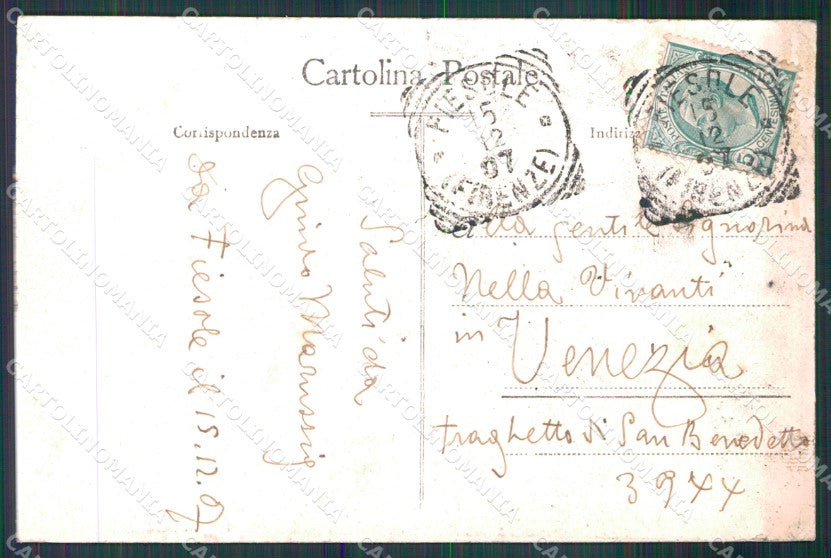 Cartolina Postale
Corrispondenza
FIESOLE
15 12 07
(FIRENZE)
FIESOLE
15 12 07
(FIRENZE)
Saluti da
Guido Marussig
da Fiesole il 15.12.07
alla gentile Signorina
Nella Vivanti
in Venezia
traghetto di San Benedetto
3944
CARTOLINOMANIA